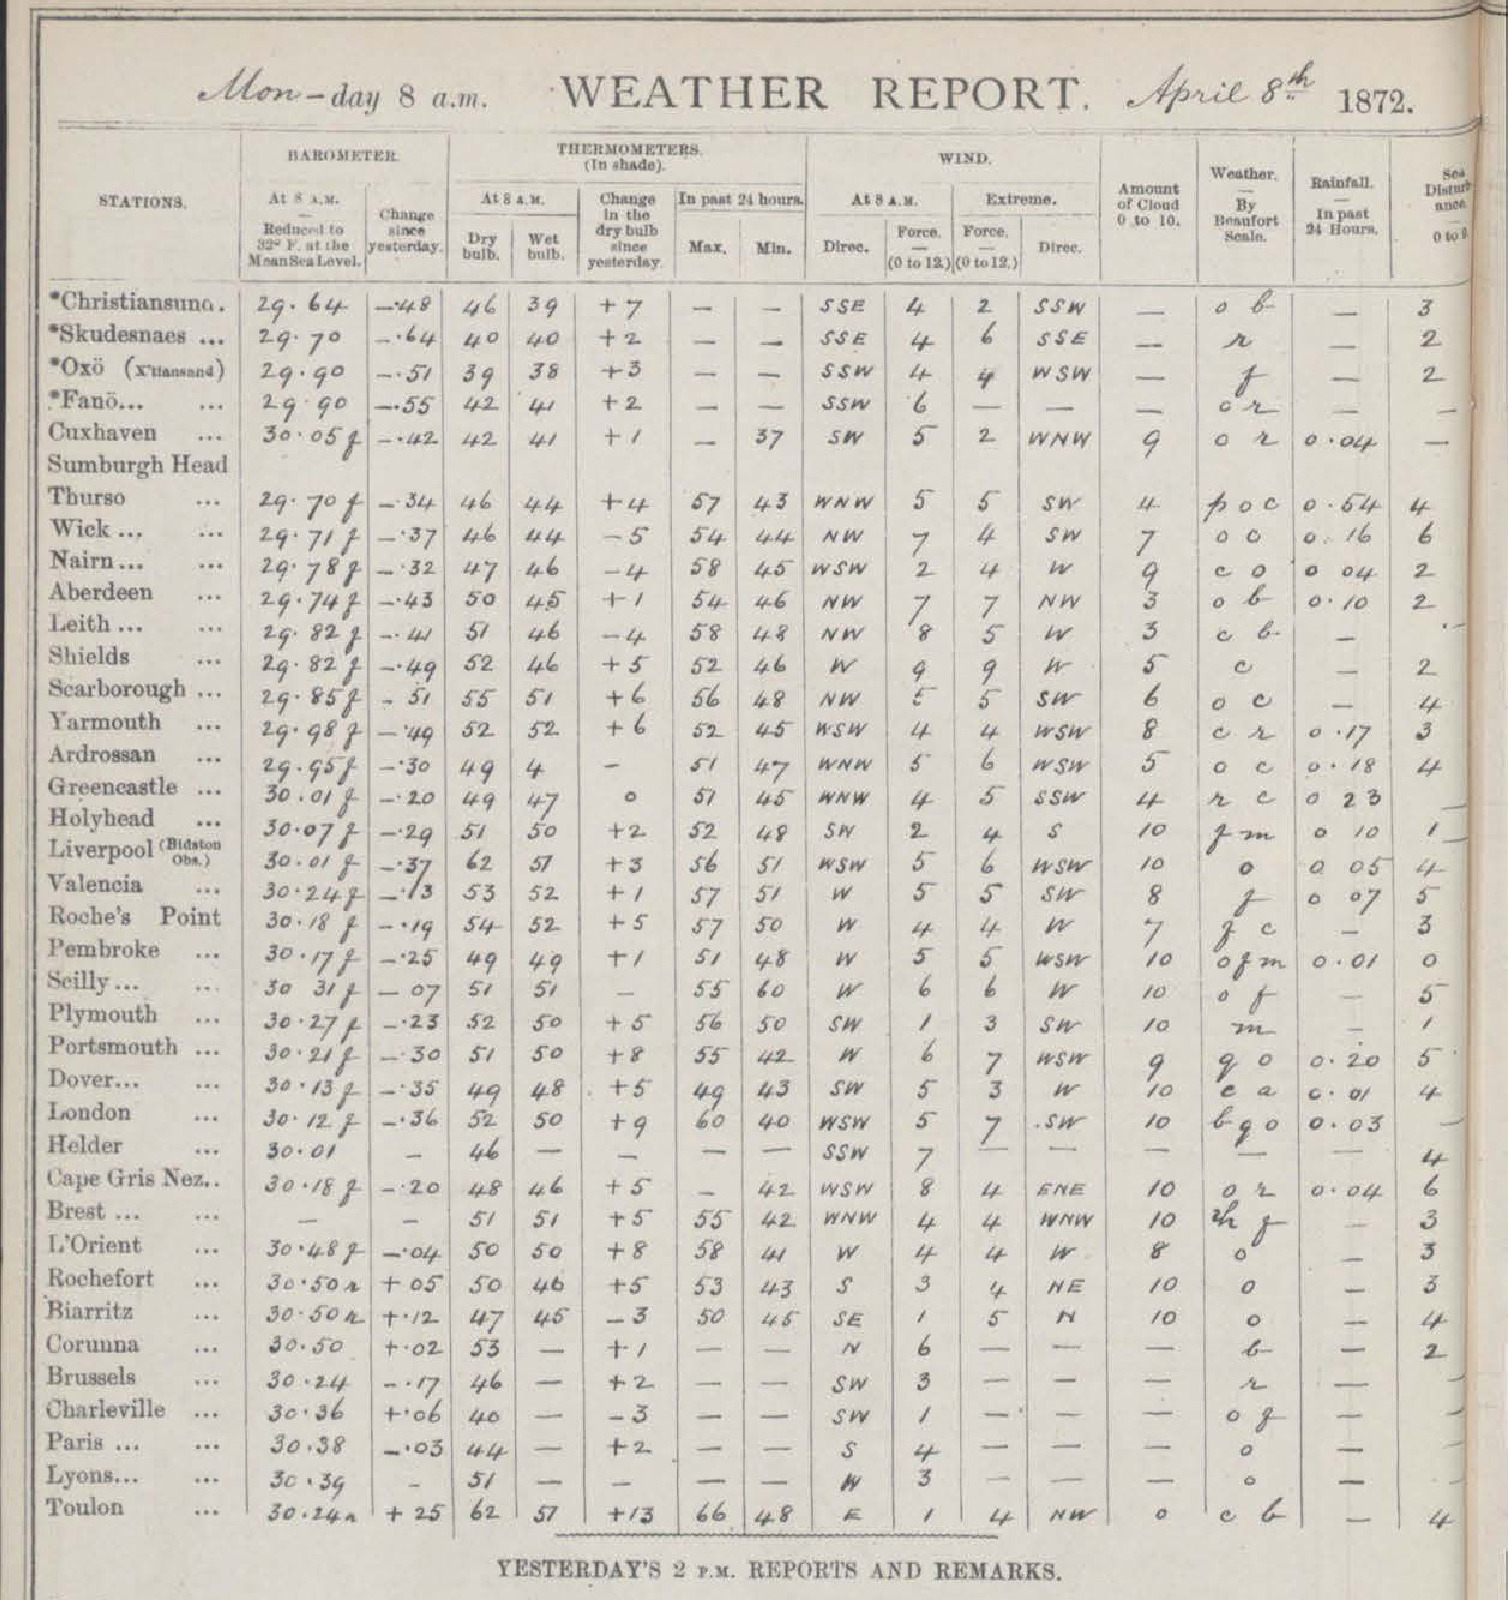 Mon-day 8 a.m. WEATHER REPORT. April 8th 1872.
STATIONS. BAROMETER. THERMOMETERS. (In shade). WIND. Amount of Cloud 0 to 10. Weather. — By Beaufort Scale. Rainfall. — In past 24 Hours. Sea Disturbance. 0 to 9.
At 8 A.M. — Reduced to 32° F. at the Mean Sea Level. Change since yesterday. At 8 A.M. Change in the dry bulb since yesterday. In past 24 hours. At 8 A.M. Extreme.
Dry bulb. Wet bulb. Max. Min. Direc. Force. — (0 to 12.) Force. — (0 to 12.) Direc.
*Christiansund. 29.64 -.48 46 39 +7 — — SSE 4 2 SSW — o b — 3
*Skudesnaes ... 29.70 -.64 40 40 +2 — — SSE 4 6 SSE — r — 2
*Oxö (X'tiansand) 29.90 -.51 39 38 +3 — — SSW 4 4 WSW — f — 2
*Fanö... ... 29 90 -.55 42 41 +2 — — SSW 6 — — — o r — —
Cuxhaven ... 30.05 f -.42 42 41 +1 — 37 SW 5 2 WNW 9 o r 0.04 —
Sumburgh Head
Thurso ... 29.70 f -.34 46 44 +4 57 43 WNW 5 5 SW 4 p o c 0.54 4
Wick ... ... 29.71 f -.37 46 44 -5 54 44 NW 7 4 SW 7 o c 0.16 6
Nairn ... ... 29.78 f -.32 47 46 -4 58 45 WSW 2 4 W 9 c o 0 04 2
Aberdeen ... 29.74 f -.43 50 45 +1 54 46 NW 7 7 NW 3 o b 0.10 2
Leith ... ... 29.82 f -.41 51 46 -4 58 48 NW 8 5 W 3 c b — —
Shields ... 29.82 f -.49 52 46 +5 52 46 W 9 9 W 5 c — 2
Scarborough ... 29.85 f - 51 55 51 +6 56 48 NW 5 5 SW 6 o c — 4
Yarmouth ... 29.98 f -.49 52 52 +6 52 45 WSW 4 4 WSW 8 c r 0.17 3
Ardrossan ... 29.95 f -.30 49 4 — 51 47 WNW 5 6 WSW 5 o c 0.18 4
Greencastle ... 30.01 f -.20 49 47 0 51 45 WNW 4 5 SSW 4 r c 0 23 —
Holyhead ... 30.07 f -.29 51 50 +2 52 48 SW 2 4 S 10 f m 0 10 1
Liverpool (Bidston Obs.) 30.01 f -.37 62 51 +3 56 51 WSW 5 6 WSW 10 o 0 05 4
Valencia ... 30.24 f -.13 53 52 +1 57 51 W 5 5 SW 8 f 0 07 5
Roche's Point 30.18 f -.19 54 52 +5 57 50 W 4 4 W 7 f c — 3
Pembroke ... 30.17 f -.25 49 49 +1 51 48 W 5 5 WSW 10 o f m 0.01 0
Scilly ... ... 30 31 f - 07 51 51 — 55 60 W 6 6 W 10 o f — 5
Plymouth ... 30.27 f -.23 52 50 +5 56 50 SW 1 3 SW 10 m — 1
Portsmouth ... 30.21 f -.30 51 50 +8 55 42 W 6 7 WSW 9 q o 0.20 5
Dover ... ... 30.13 f -.35 49 48 +5 49 43 SW 5 3 W 10 c a 0.01 4
London ... 30.12 f -.36 52 50 +9 60 40 WSW 5 7 SW 10 b q o 0.03 —
Helder ... 30.01 — 46 — — — — SSW 7 — — — — — 4
Cape Gris Nez.. 30.18 f -.20 48 46 +5 — 42 WSW 8 4 ENE 10 o r 0.04 6
Brest ... ... — — 51 51 +5 55 42 WNW 4 4 WNW 10 f — 3
L'Orient ... 30.48 f -.04 50 50 +8 58 41 W 4 4 W 8 o — 3
Rochefort ... 30.50 r + 05 50 46 +5 53 43 S 3 4 NE 10 o — 3
Biarritz ... 30.50 r +.12 47 45 -3 50 45 SE 1 5 N 10 o — 4
Corunna ... 30.50 +.02 53 — +1 — — N 6 — — — b — 2
Brussels ... 30.24 -.17 46 — +2 — — SW 3 — — — r — —
Charleville ... 30.36 +.06 40 — -3 — — SW 1 — — — o f — —
Paris ... ... 30.38 -.03 44 — +2 — — S 4 — — — o — —
Lyons ... ... 30.39 - 51 — — — — W 3 — — — o — —
Toulon ... 30.24 r + 25 62 57 +13 66 48 E 1 4 NW 0 c b — 4
YESTERDAY'S 2 P.M. REPORTS AND REMARKS.